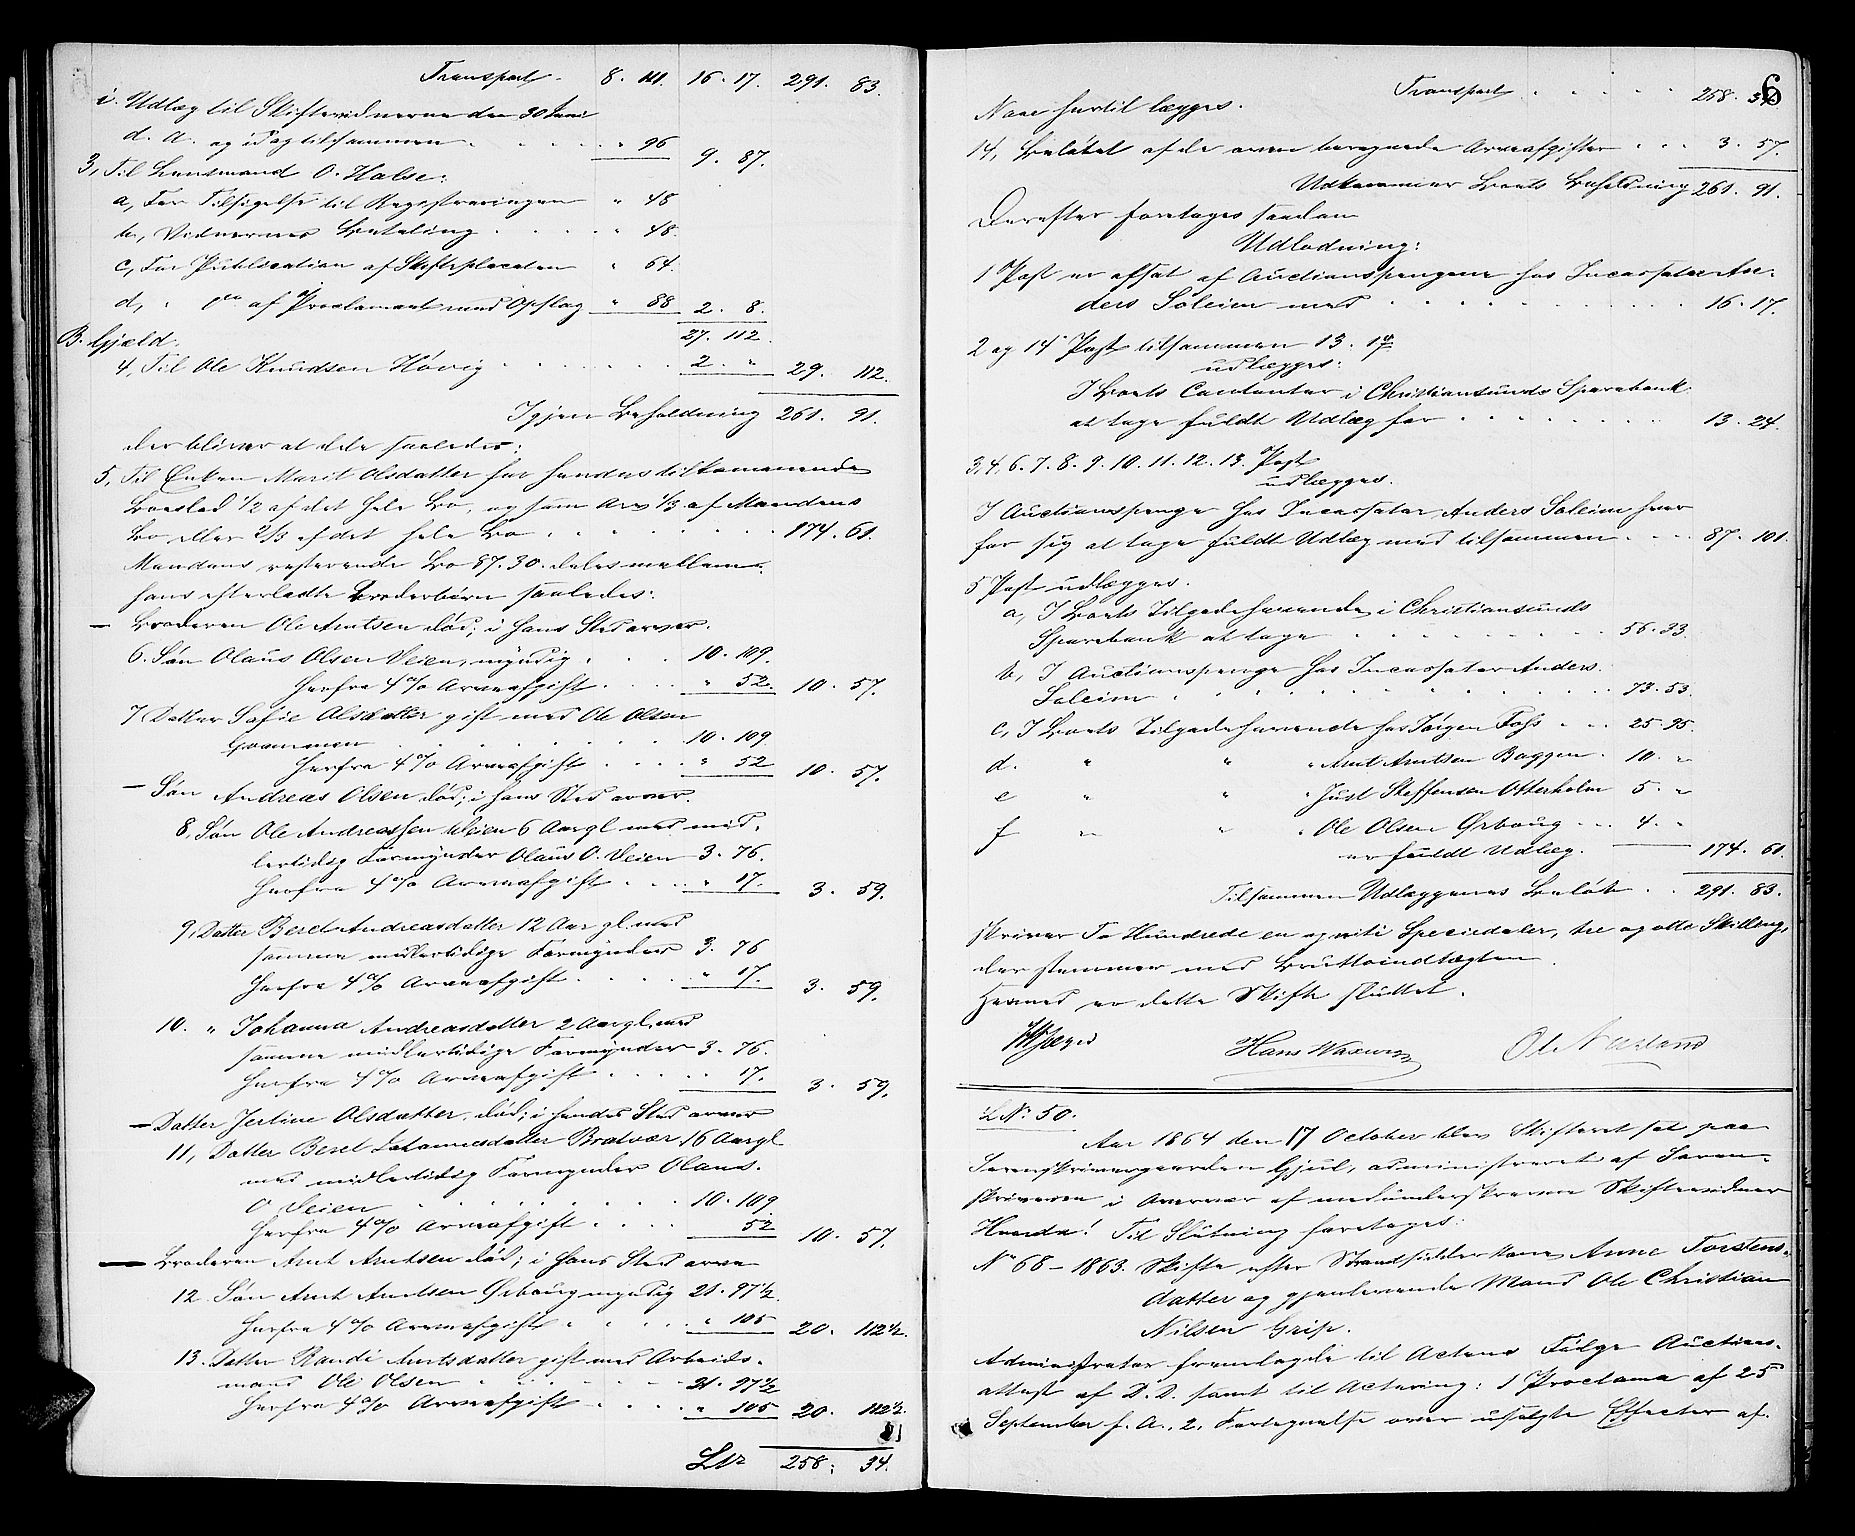 Transport. 8. 111. 16. 17. 291. 83.
i. Udlæg til Skiftevidnerne den 30 Juni
d. A. og idag tilsammen . . . . " 96 9. 87.
3, Til Lensmand O. Halse:
a, For Tilsigelse til Registreringen " 48
b, Vidnernes Betaling . . . . " 48.
c, For Publication af Skifteplacaten " 64.
d, " do af Proclamaet med Opslag " 88 2. 8.
27. 112.
B. Gjæld.
4, Til Ole Knudsen Hövig . . . . . . 2. " 29. 112.
Igjen Beholdning 261. 91.
der bliver at dele saaledes:
5, Til Enken Marit Olsdatter for hendes tilkommende
Boeslod 1/2 af det hele Bo, og som Arv 1/3 af Mandens
Bo eller 2/3 af det hele Bo . . . . . . . 174. 61.
Mandens resterende Bo 87. 30. deles mellem
hans efterladte Broderbörn saaledes:
— Broderen Ole Arntsen död; i hans Sted arver.
6. Sön Olaus Olsen Veien, myndig . . . 10. 109.
Herfra 4% Arveafgift . . . . " 52. 10. 57.
7, Datter Sofie Olsdatter gift med Ole Olsen
. . . . . . . 10. 109
Herfra 4% Arveafgift . . . . " 52 10. 57.
— Sön Andreas Olsen, död; i hans Sted arver.
8, Sön Ole Andreassen Veien 6 Aar gl. med mid-
lertidig Formynder Olaus O. Veien 3. 76.
Herfra 4% Arveafgift . . . . " 17. 3. 59.
9, Datter Beret Andreasdatter 12 Aar gl. med
samme midlertidige Formynder 3. 76
Herfra 4% Arveafgift . . . . " 17. 3. 59.
10. " Johanna Andreasdatter 2 Aar gl. med
samme midlertidige Formynder 3. 76.
Herfra 4% Arveafgift . . . . " 17. 3. 59.
— Datter Jertine Olsdatter, död; i hendes Sted arver
11, Datter Beret Johannesdatter Bratvær 16 Aar gl
med midlertidig Formynder Olaus
O Veien . . . . . . . 10. 109
Herfra 4% Arveafgift . . . . 52 10. 57.
— Broderen Arnt Arntsen död; i hans Sted arve
12. Sön Arnt Arntsen Örboug myndig 21. 97 1/2.
Herfra 4% Arveafgift . . . . " 105 20. 112 1/2.
13. Datter Randi Arntsdatter gift med Arbeids-
mand Ole Olsen . . . . . . 21. 97 1/2
Herfra 4% Arveafgift . . . . " 105 20. 112 1/2.
Ltr 258. 34.
6
Transport . . . . . 258. 34
Naar hertil lægges.
14, Belöbet af de oven beregnede Arveafgifter . . . 3. 57.
Udkommer Boets Beholdning 261. 91.
Derefter foretages saadan
Udlodning:
1 Post er afsat af Auctionspengene hos Incassator An-
ders Soleim med . . . . . . . . 16. 17.
2 og 14 Post tilsammen 13. 17
udlægges:
I Boets Contanter i Christiansunds Sparebank
at tage fuldt Udlæg for . . . . . . . 13. 24.
3, 4, 6. 7. 8. 9. 10. 11. 12. 13. Post
udlægges.
I Auctionspenge hos Incassator Anders Soleim hver
for sig at tage fuldt Udlæg med tilsammen . . . 87. 101.
5 Post udlægges.
a, I Boets Tilgodehavende i Christiansunds
Sparebank at tage . . . . . . . 56. 33.
b, I Auctionspenge hos Incassator Anders
Soleim . . . . . . . . 73. 53.
c, I Boets Tilgodehavende hos Jörgen Foss . . . 25. 95.
d. " " " Arnt Arntsen Boggen . 10. "
e " " " Just Steffensen Otterholm 5. "
f " " " Ole Olsen Örboug . . . 4. "
er fuldt Udlæg. 174. 61.
Tilsammen Udlæggenes Belöb . . 291. 83.
skriver To Hundrede en og niti Speciedaler, tre og otti Skilling,
der stemmer med Bruttoindtægten.
Hermed er dette Skifte sluttet.
Hans Ole
L No. 50.
Aar 1864 den 17 October blev Skifteret sat paa
Sorenskrivergaarden Gjul, administreret af Soren-
skriveren i Overvær af medunderskrevne Skiftevidner
Hvorda! Til Slutning foretoges:
No 68 – 1863. Skifte efter Strandsidderkone Anne Torstens-
datter og gjenlevende Mand Ole Christian
Nilsen Grip.
Administrator fremlagde til Actens Fölge Auctions-
attest af D. D. samt til Actering: 1 Proclama af 25
September f. A., 2, Fortegnelse over usolgte Effecter af